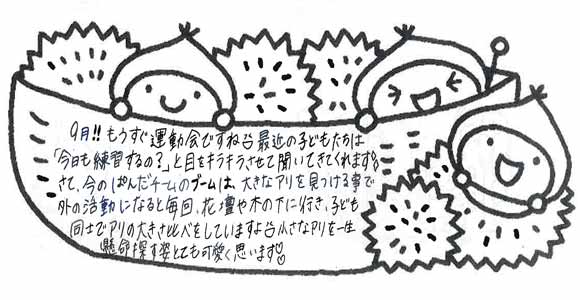 9月!! もうすぐ運動会ですね 最近の子どもたちは
「今日も練習するの?」と目をキラキラさせて聞いてきてくれます
さて、今のぱんだチームのブームは、大きなアリを見つける事で
外の活動になると毎回、花壇や木の下に行き、子ども
同士でアリの大きさ比べをしていますよ 小さなアリを一生
懸命探す姿とても可愛く思います♡